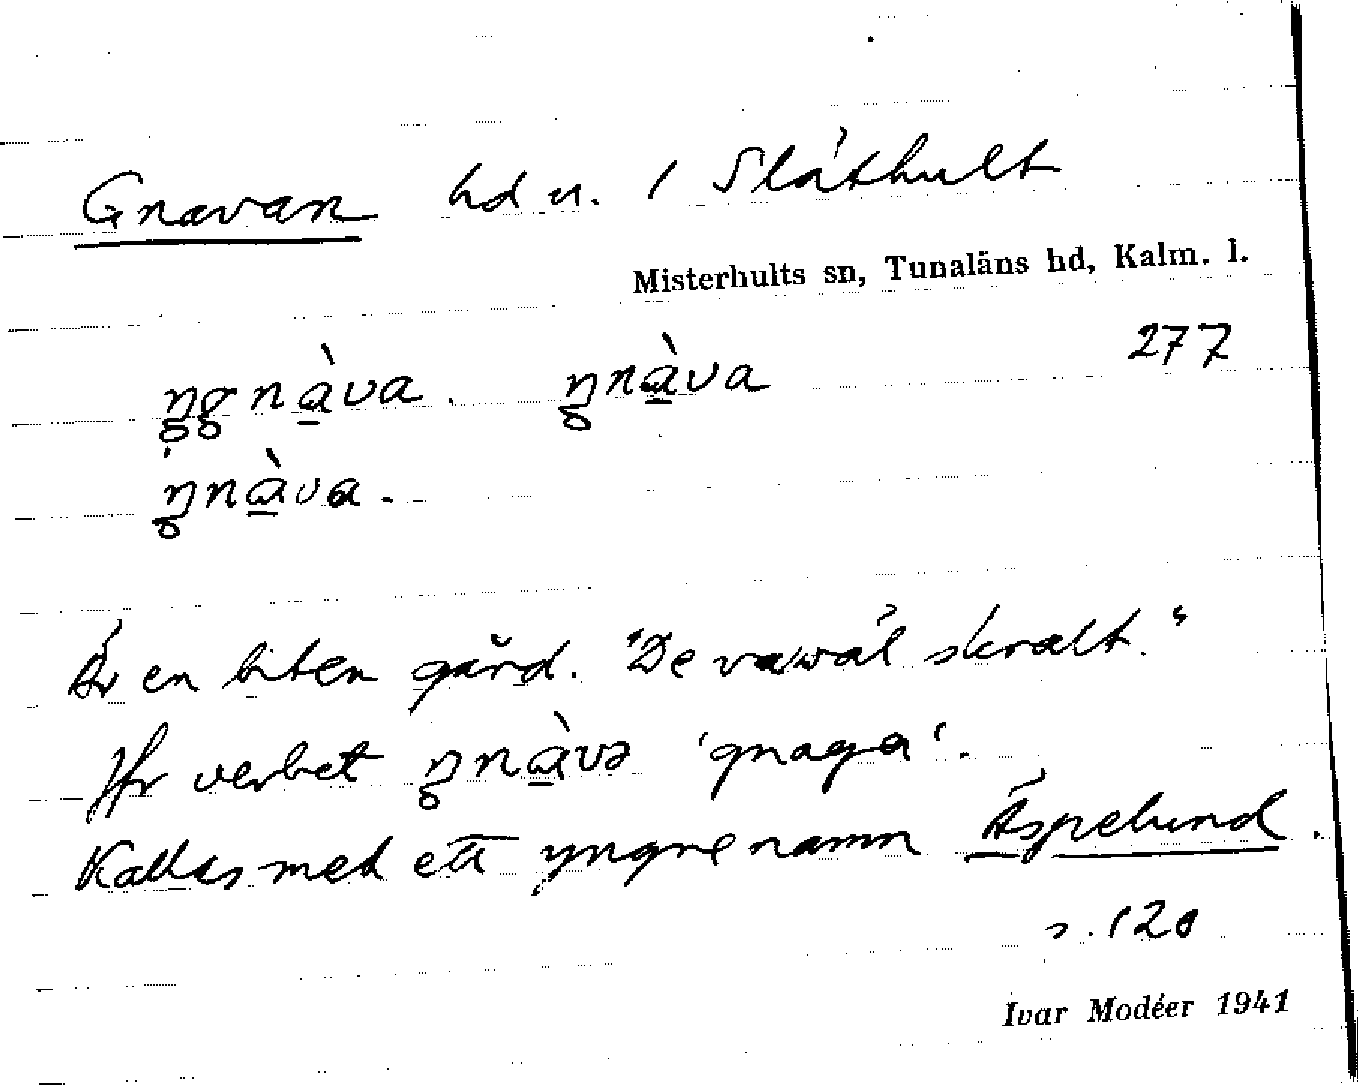 Gnavan hd u. / Slåthult
Misterhults sn, Tunaläns hd, Kalm. l.
277
ŋgnàva. ŋnàva
ŋnàva.
Är en liten gård. "De va wål skralt."
Jfr verbet ŋnàvə 'gnaga'.
Kallas med ett yngre namn Äspelund.
s. 120
Ivar Modéer 1941